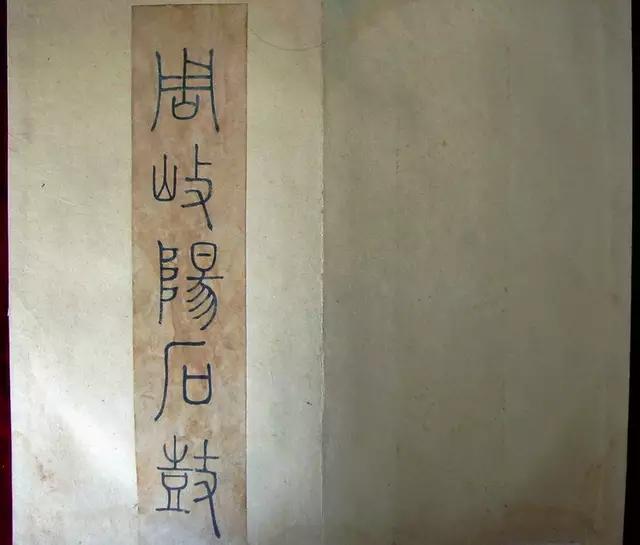 周岐陽石鼓